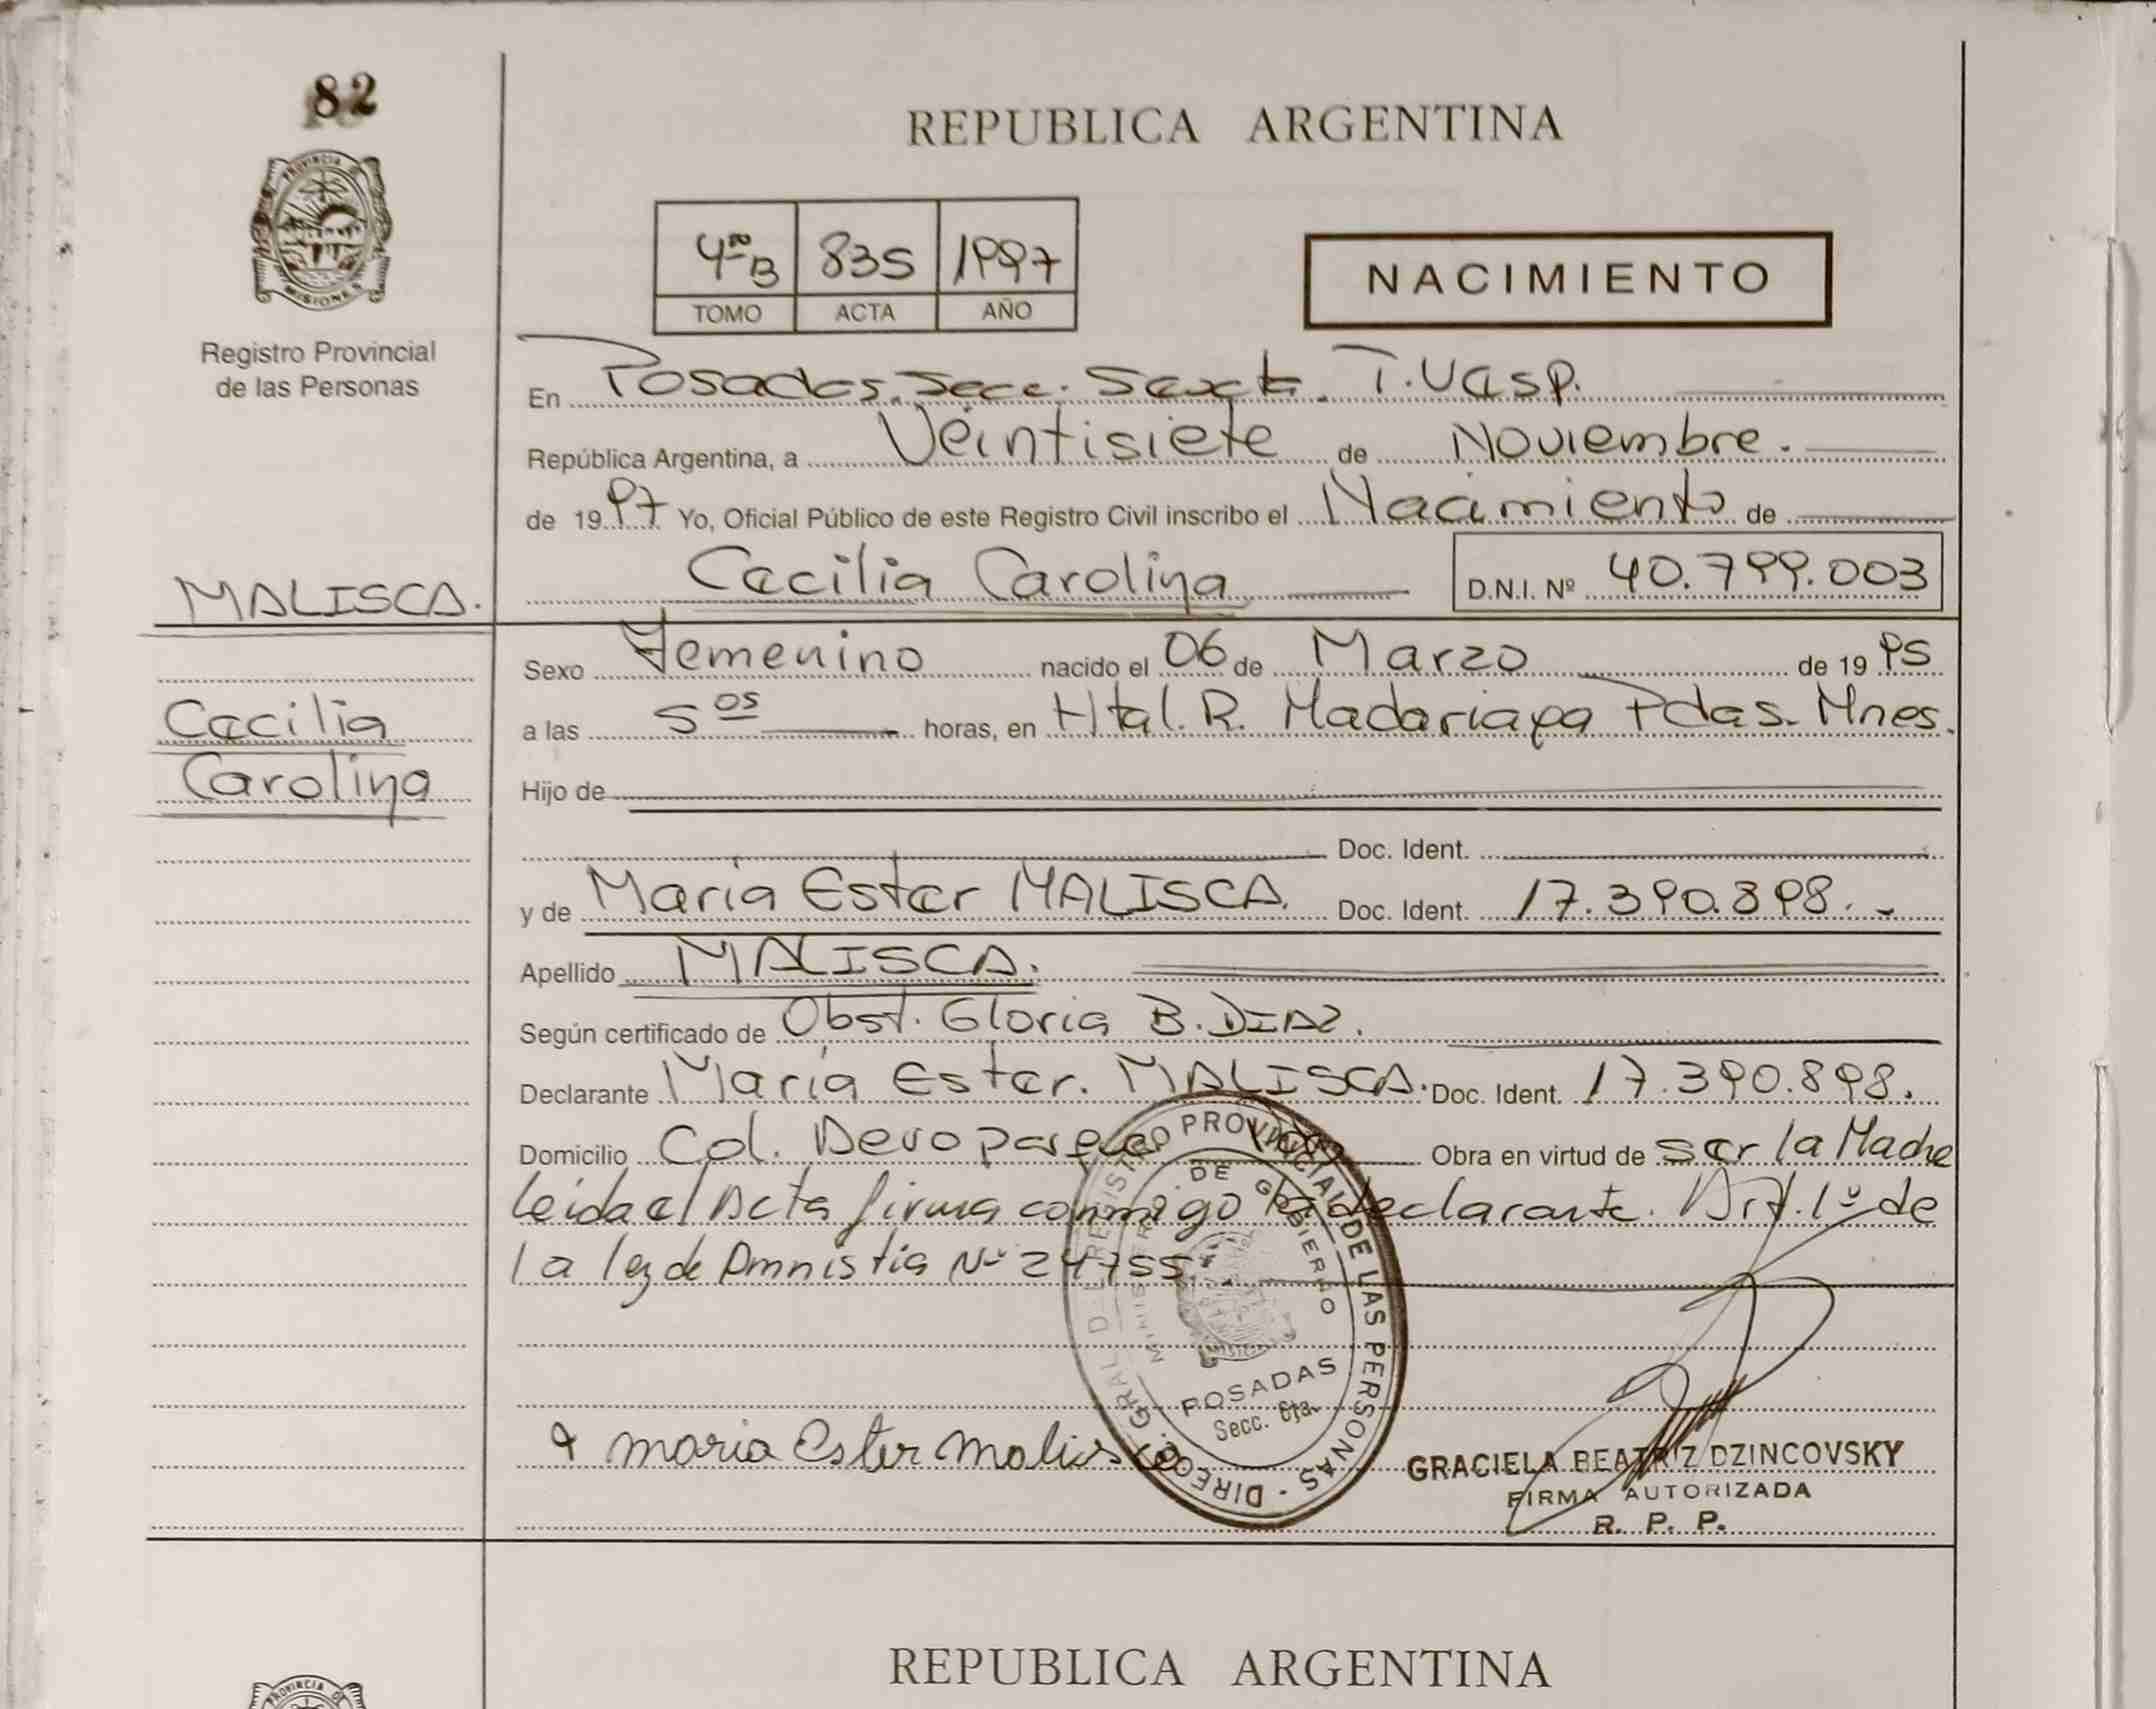 82
PROVINCIA
MISIONES
Registro Provincial
de las Personas
REPUBLICA ARGENTINA
4º B 835 1997
TOMO ACTA AÑO
NACIMIENTO
En Posadas. Secc. Sexta.
República Argentina, a Veintisiete de Noviembre.
de 1997 Yo, Oficial Público de este Registro Civil inscribo el Nacimiento de
Cecilia Carolina D.N.I. Nº 40.799.003
MALISCA.
Sexo Femenino nacido el 06 de Marzo de 1995
Cecilia
Carolina
a las 5 05 horas, en Htal. R. Madariaga Pdas. Mnes.
Hijo de
Doc. Ident.
y de María Ester MALISCA. Doc. Ident. 17.390.898.-
Apellido MALISCA.
Según certificado de Obst. Gloria B. DIAZ.
Declarante María Ester. MALISCA. Doc. Ident. 17.390.898.
Domicilio Col. Obra en virtud de ser la Madre
leida el Acta firma conmigo la declarante. Art. 1º de
la ley de Amnistia Nº 24755
DIREC. GRAL. DEL REGISTRO PROVINCIAL DE LAS PERSONAS
MINISTERIO DE GOBIERNO
POSADAS
Secc. 6ta.
maria Ester Malisca
GRACIELA BEATRIZ DZINCOVSKY
FIRMA AUTORIZADA
R. P. P.
REPUBLICA ARGENTINA
PROVINCIA DE